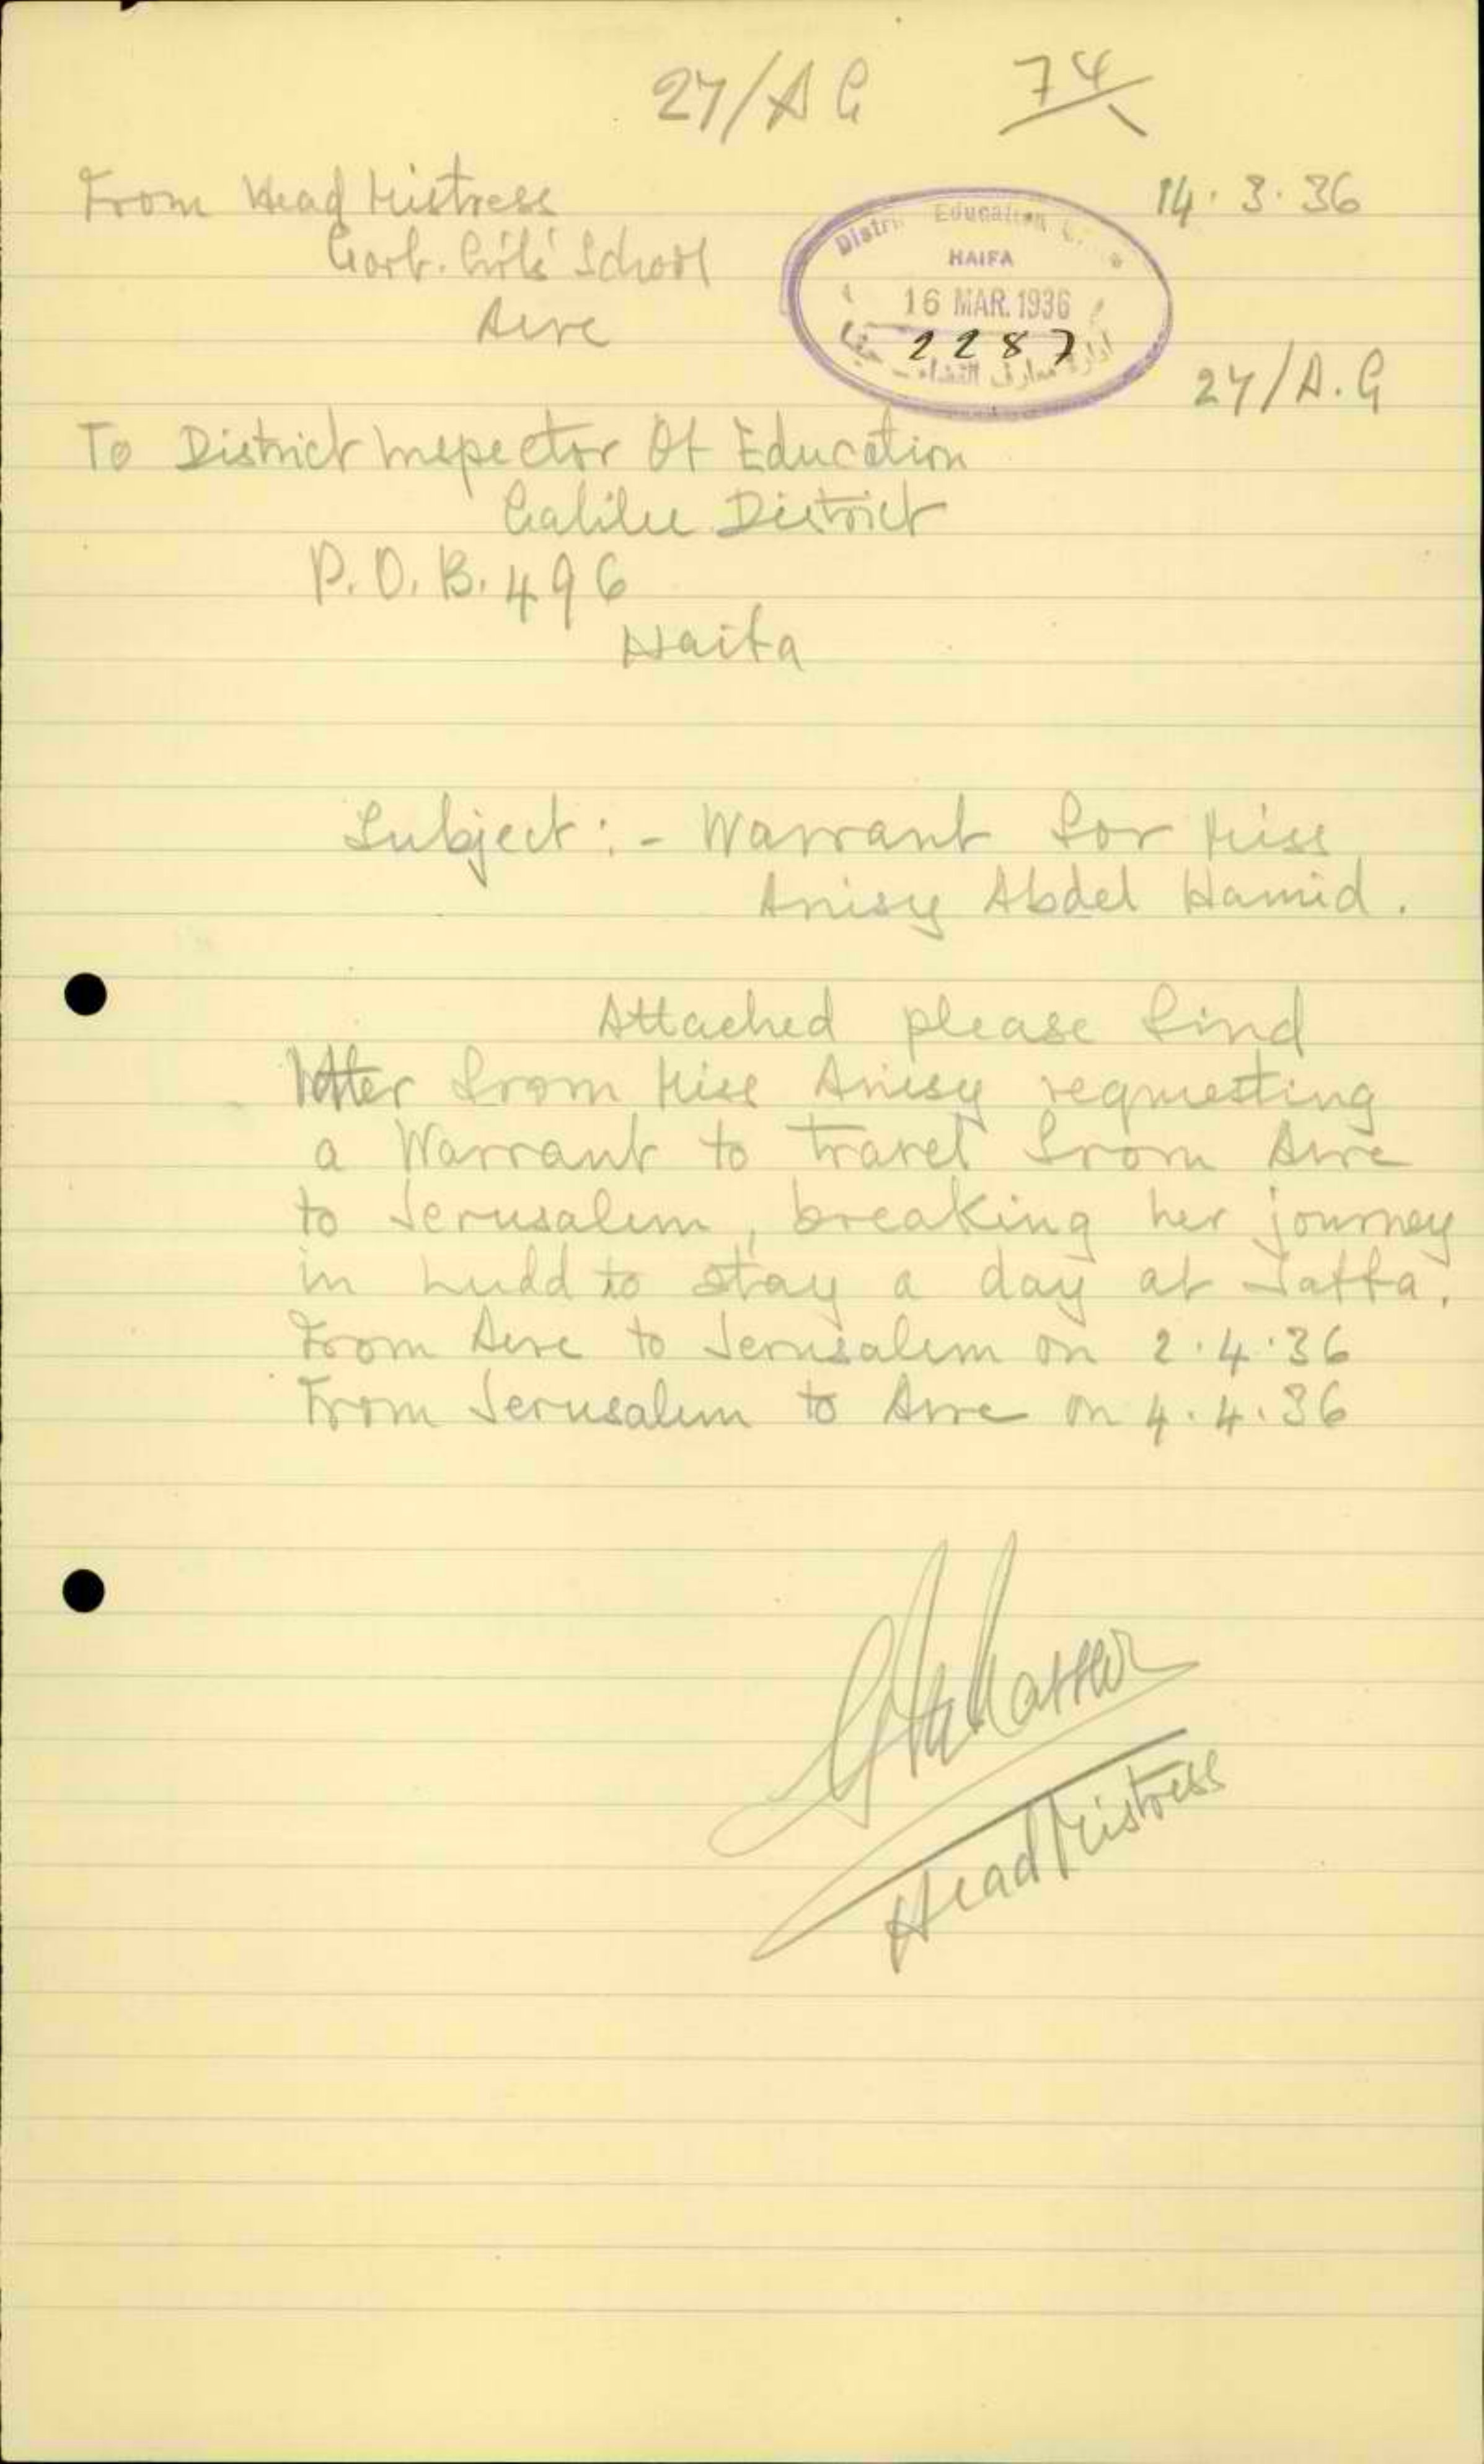 27/A G 74
From Head Mistress 14.3.36
Govt. Girls' School
Acre
District Education
HAIFA
16 MAR. 1936
2287
ادارة معارف القضاء - حيفا
27/A.G
To District Inspector Of Education
Galilee District
P.O.B. 496
Haifa
Subject :- Warrant for Miss
Anisy Abdel Hamid.
Attached please find
letter from Miss Anisy requesting
a Warrant to travel from Acre
to Jerusalem, breaking her journey
in Ludd to stay a day at Jaffa.
From Acre to Jerusalem on 2.4.36
From Jerusalem to Acre on 4.4.36
Head Mistress